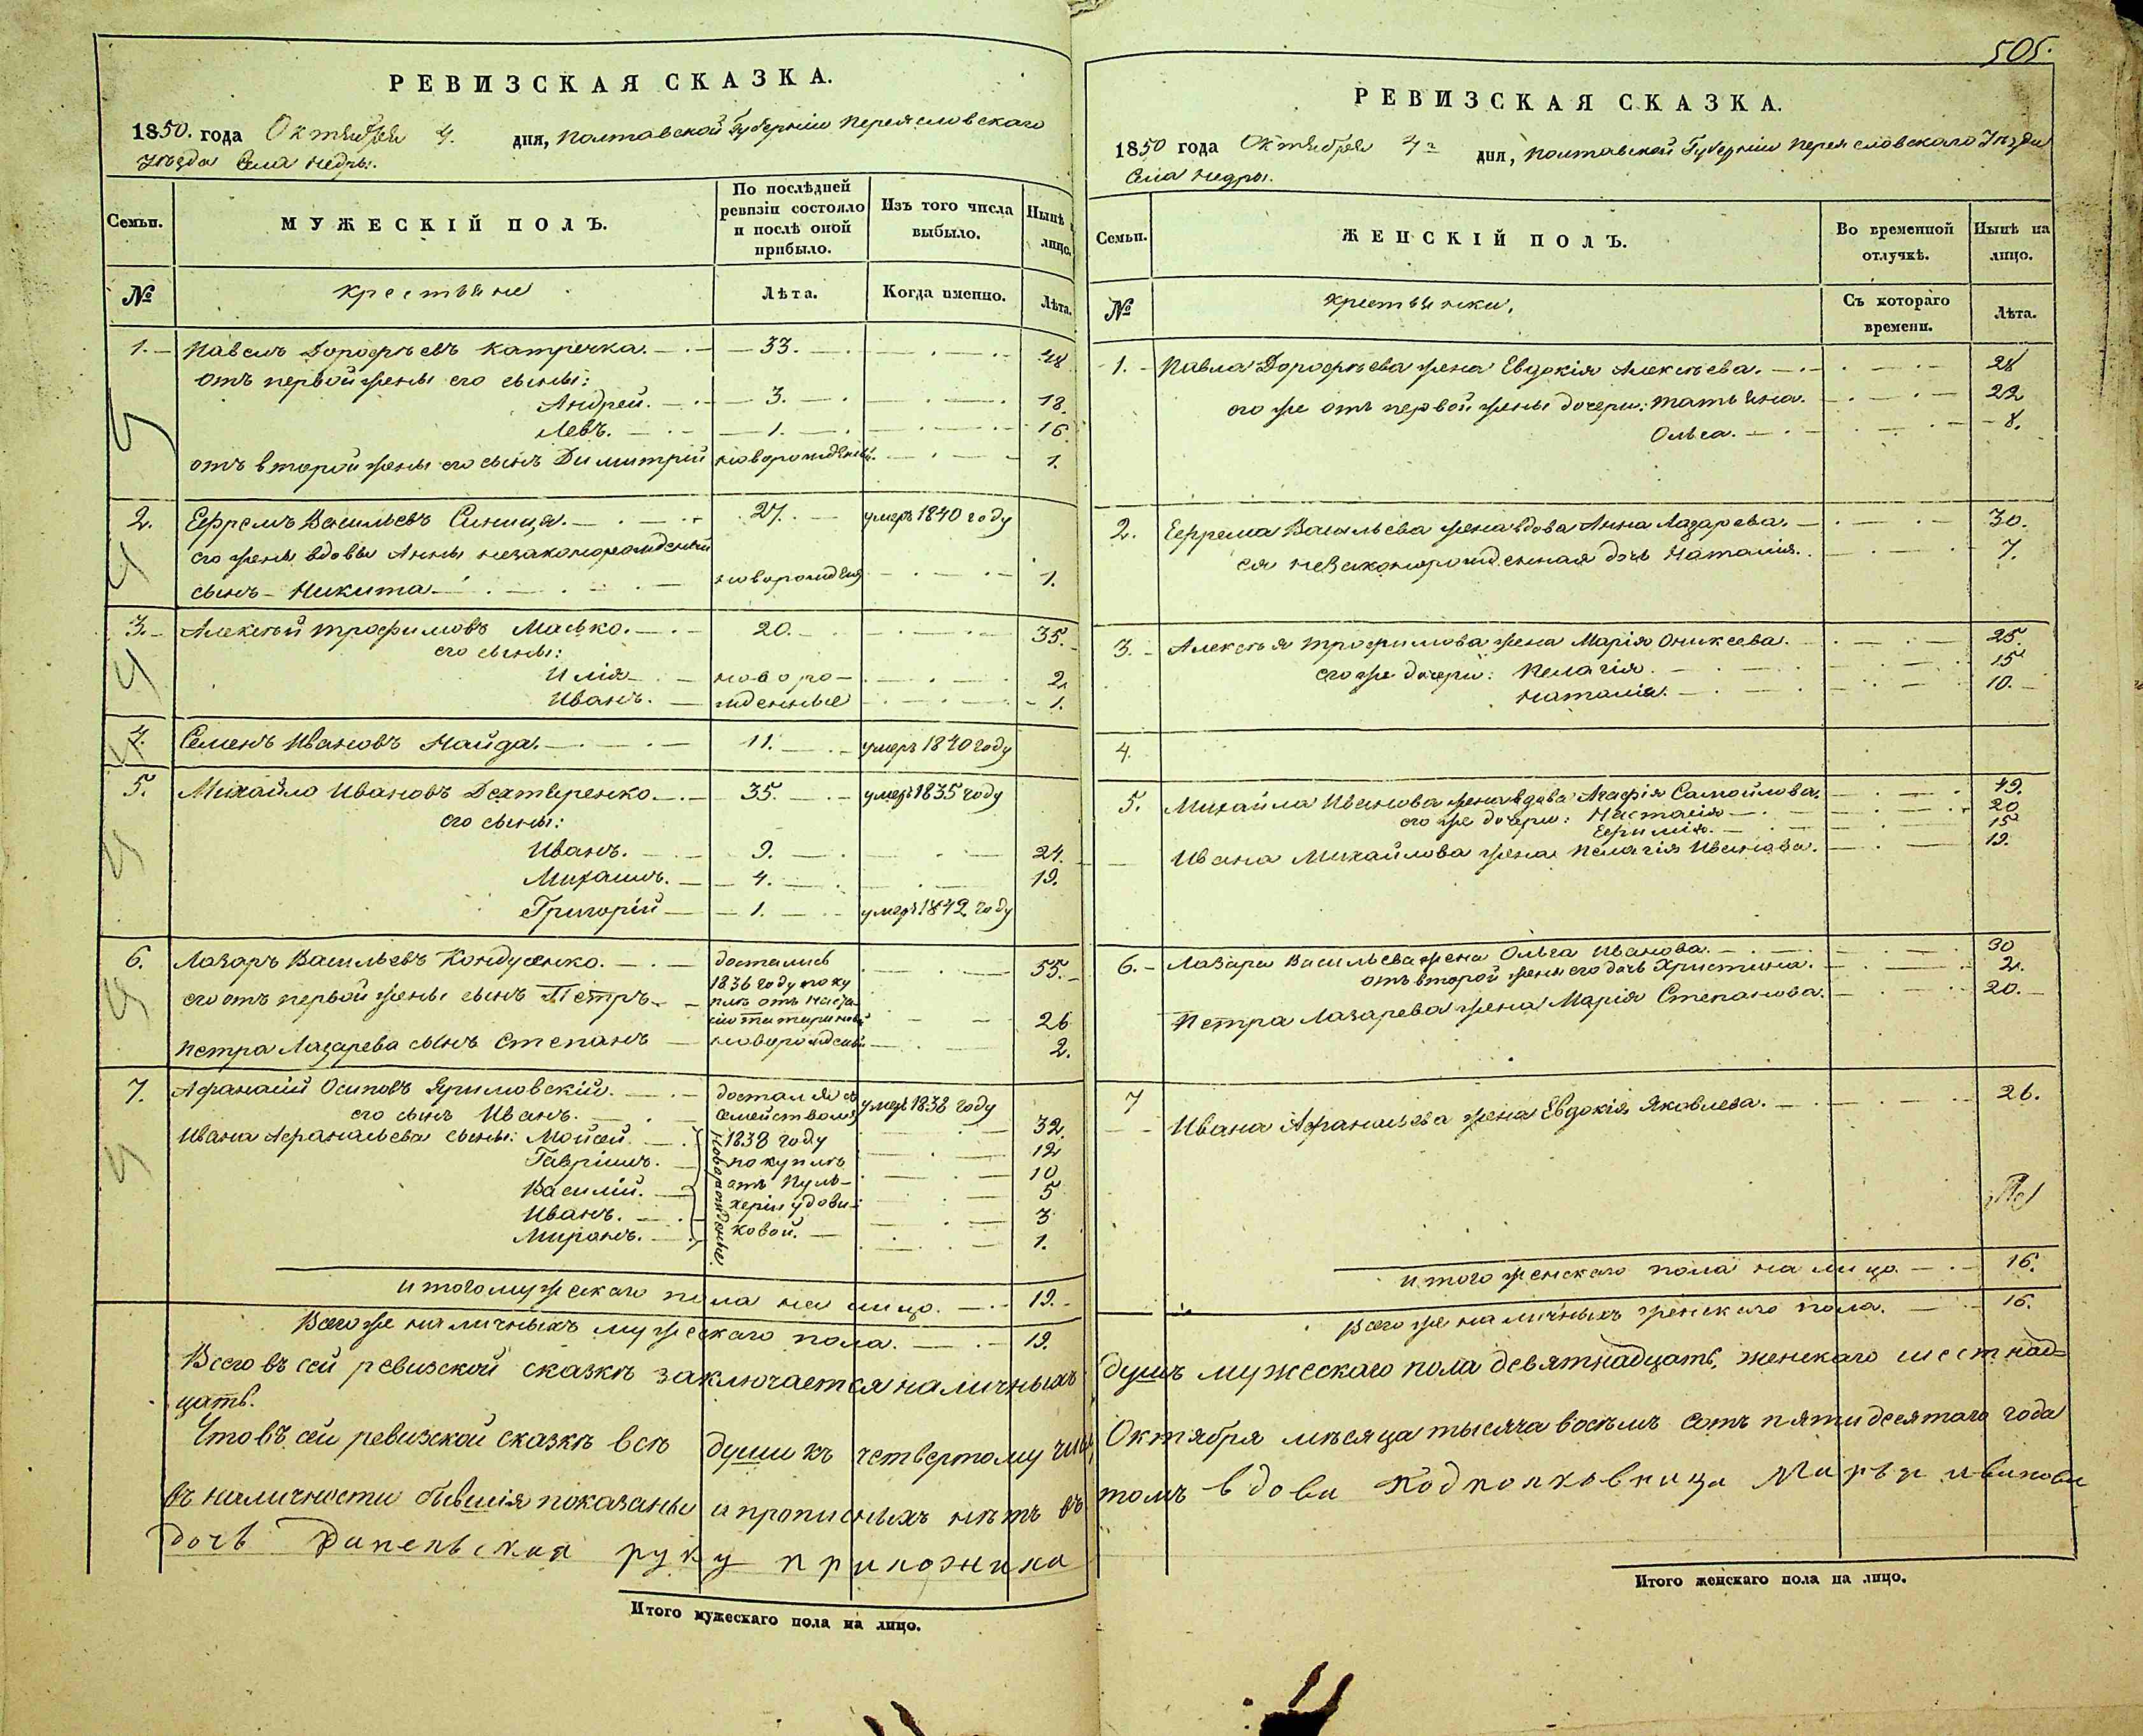 505.
РЕВИЗСКАЯ СКАЗКА.
1850. года Октября 4. дня, Полтавской Губерніи Переясловскаго
уѣзда Села Недры.
Семьи.
МУЖЕСКІЙ ПОЛЪ.
По послѣдней ревизіи состояло и послѣ оной прибыло.
Изъ того числа выбыло.
Нынѣ лицо.
№
крестьяне
Лѣта.
Когда именно.
Лѣта.
1. Павелъ Дорофѣевъ Катречка. 33. 48
отъ первой жены его сыны:
Андрей. 3. 18.
Левъ. 1. 16
отъ второй жены его сынъ Димитрій новорожденый. 1.
2. Ефремъ Васильевъ Синица. 27. умеръ 1840 году
его жены вдовы Анны незаконорожденый
сынъ Никита новорожденй 1.
3. Алексѣй Трофимовъ Масько. 20. 35.
его сыны:
Илія новоро- 2
Иванъ. жденные 1.
4. Семенъ Ивановъ Найда. 11. умеръ 1840 году
5. Михайло Ивановъ Дехтяренко 35. умеръ 1835 году
его сыны:
Иванъ. 9. 24.
Михаилъ. 4. 19.
Григорій 1. умеръ 1842 году
6. Лазаръ Васильевъ Кондусенко. достались 55.
1836 году поку
его отъ первой жены сынъ Петръ пкѣ отъ Наста-
26
Петра Лазарева сынъ Степанъ новорожденый 2.
7. Афанасій Осиповъ Яримовскій. достался съ умеръ 1838 году
его сынъ Иванъ. семействомъ 32.
Ивана Афанасьева сыны: Мойсей. 1838 году 12
Гавріилъ. покупкѣ 10
Василій. отъ Пуль- 5
Иванъ. херіи Удови- 3
Миронъ. ковой. 1.
новорожденые.
итого мужескаго пола на лицо. 19.
Всего же наличныхъ мужескаго пола. 19.
РЕВИЗСКАЯ СКАЗКА.
1850 года Октября 4го дня, Полтавской Губерніи Переясловскаго Уѣзда
Села Недры.
Семьи.
ЖЕНСКІЙ ПОЛЪ.
Во временной отлучкѣ.
Нынѣ на лицо.
№
крестьянки.
Съ котораго времени.
Лѣта.
1. Павла Дорофѣева жена Евдокія Алексѣева. 28
его же отъ первой жены дочери: Татьяна. 22
Ольга. 8.
2. Ефрема Васильева жена вдова Анна Лазарева. 30.
ея незаконорожденная дочь Наталія. 7.
3. Алексѣя Трофимова жена Марія Оникеева. 25.
его же дочери: Пелагія 15
Наталія. 10.
4.
5. Михайла Иванова жена вдова Агафія Самойлова. 49.
его же дочери: Настасія 20
Ефимія. 15
Ивана Михайлова жена Пелагія Иванова. 19.
6. Лазаря Васильева жена Ольга Иванова. 30
отъ второй жены его дочь Христина. 2.
Петра Лазарева жена Марія Степанова. 20.
7
Ивана Афанасьева жена Евдокія Яковлева. 26.
итого женскаго пола на лицо 16.
Всего же наличныхъ женскаго пола. 16.
Всего въ сей ревизской сказкѣ заключается наличныхъ душъ мужескаго пола девятнадцать, женскаго шестнад=
цать.
Что въ сей ревизской сказкѣ всѣ души къ четвертому числу Октября мѣсяца тысяча восѣмъ сотъ пятидесятаго года
въ наличности бывшія показаны и прописныхъ нѣтъ въ томъ вдова Подполковница Марья Иванова
дочь руку приложила
Итого мужескаго пола на лицо.
Итого женскаго пола на лицо.